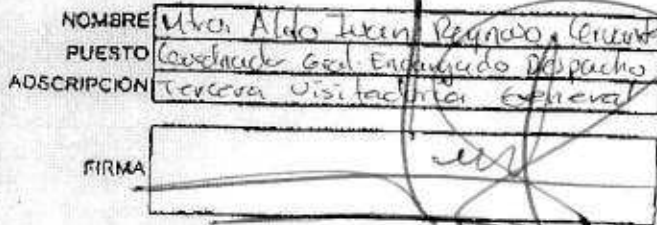 NOMBRE Mtro. Aldo Ivan Reynoso
PUESTO Coordinador Gral. Encargado Despacho
ADSCRIPCIÓN Tercera Visitaduría General
FIRMA